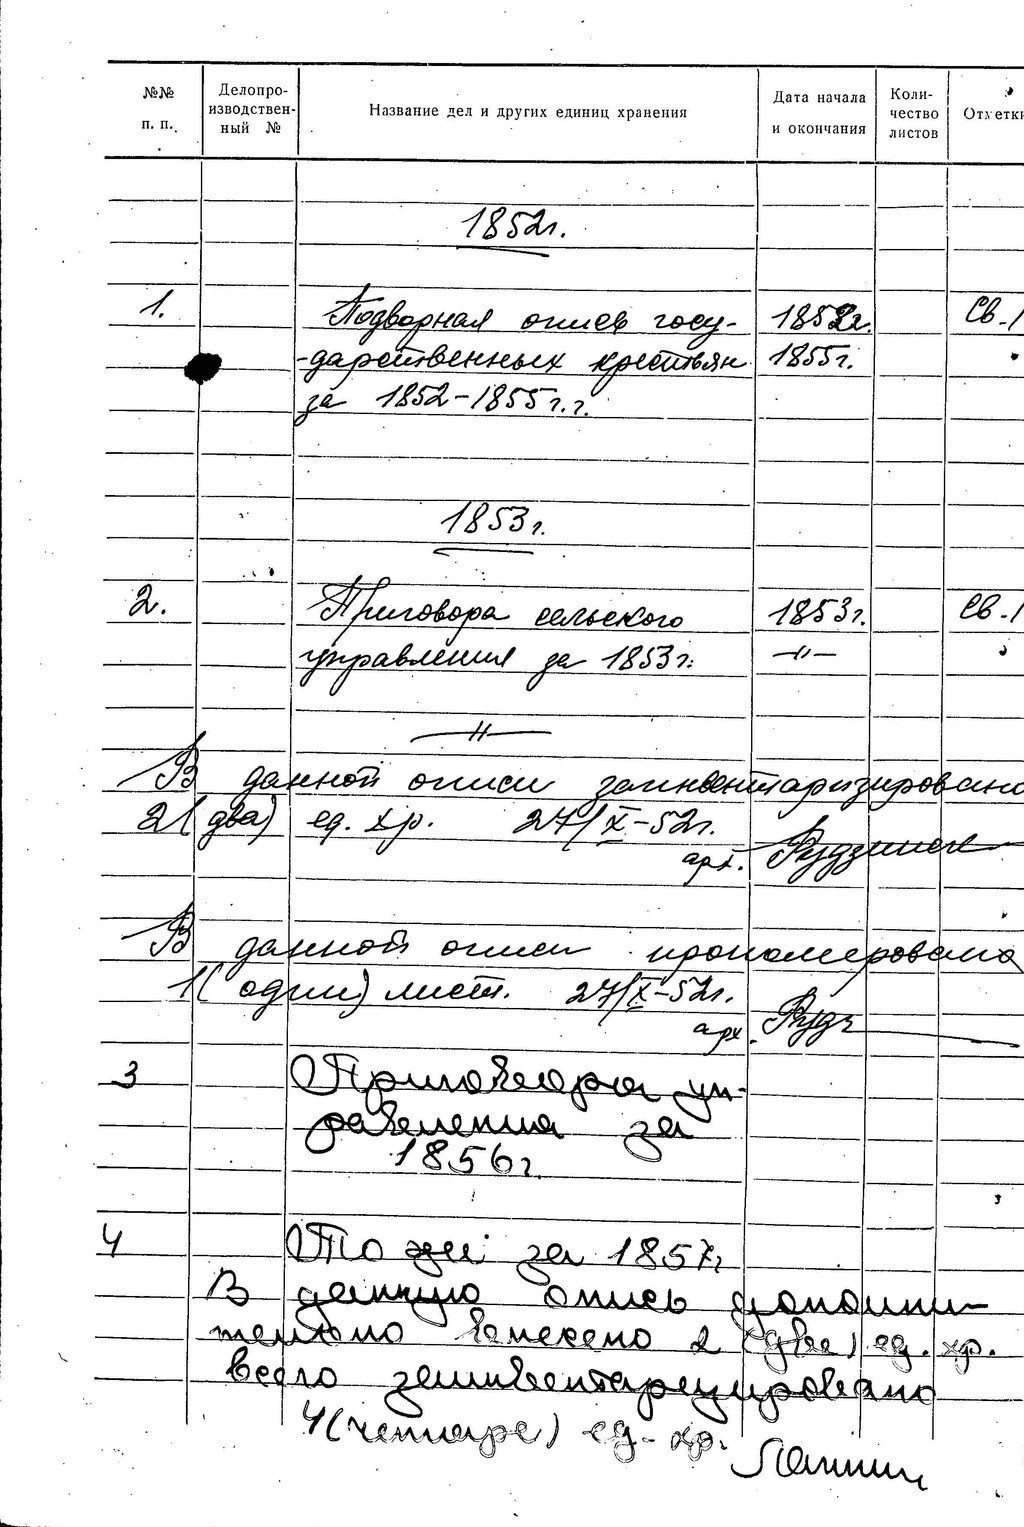 №№ п. п. Делопро-изводствен-ный № Название дел и других единиц хранения Дата начала и окончания Коли-чество листов Отметки
1852г.
1. Подворная опись госу- 1852г. Св.1
-дарственных крестьян 1855г.
за 1852-1855г.г.
1853г.
2. Приговора сельского 1853г. Св.1
управления за 1853г. —"—
—"—
В данной описи заинвентаризировано
2 (два) ед. хр. 27/X-52г.
арх.
В данной описи пронумеровано
1 (один) лист. 27/X-52г.
арх.
3 Приговора уп-
равления за
1856г.
4 То же за 1857г
В данную опись дополни-
тельно внесено 2 (две) ед. хр.
всего заинвентаризировано
4 (четыре) ед. хр.